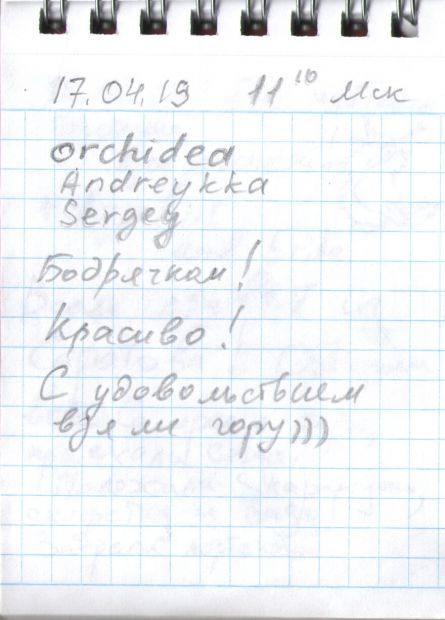 17.04.19 11¹⁰ Мск
orchidea
Andreykka
Sergey
Бодрячком!
Красиво!
С удовольствием
взяли гору)))